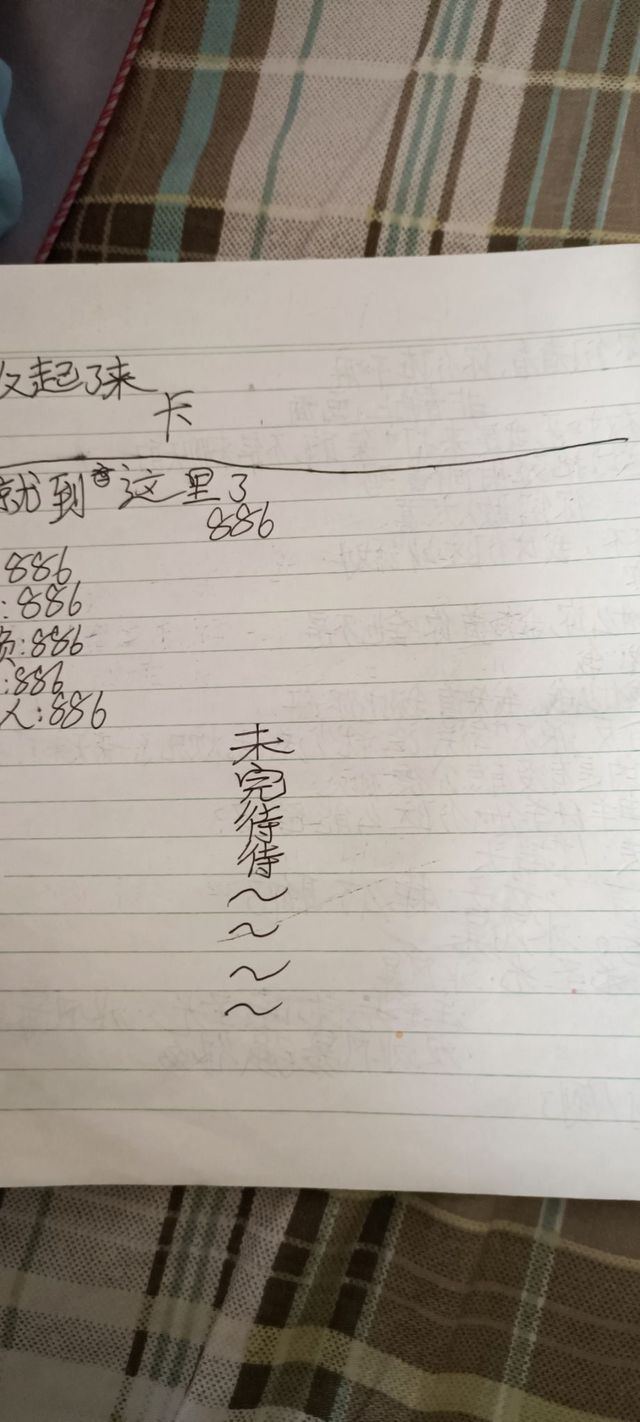 起了来
卡
就到这里了
886
886
:886
员:886
:886
人:886
未
完
待
待
～
～
～
～